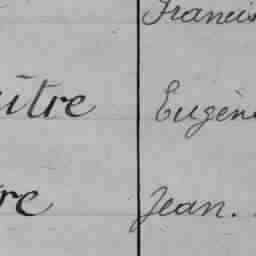 Francis
aître Eugène
re Jean.